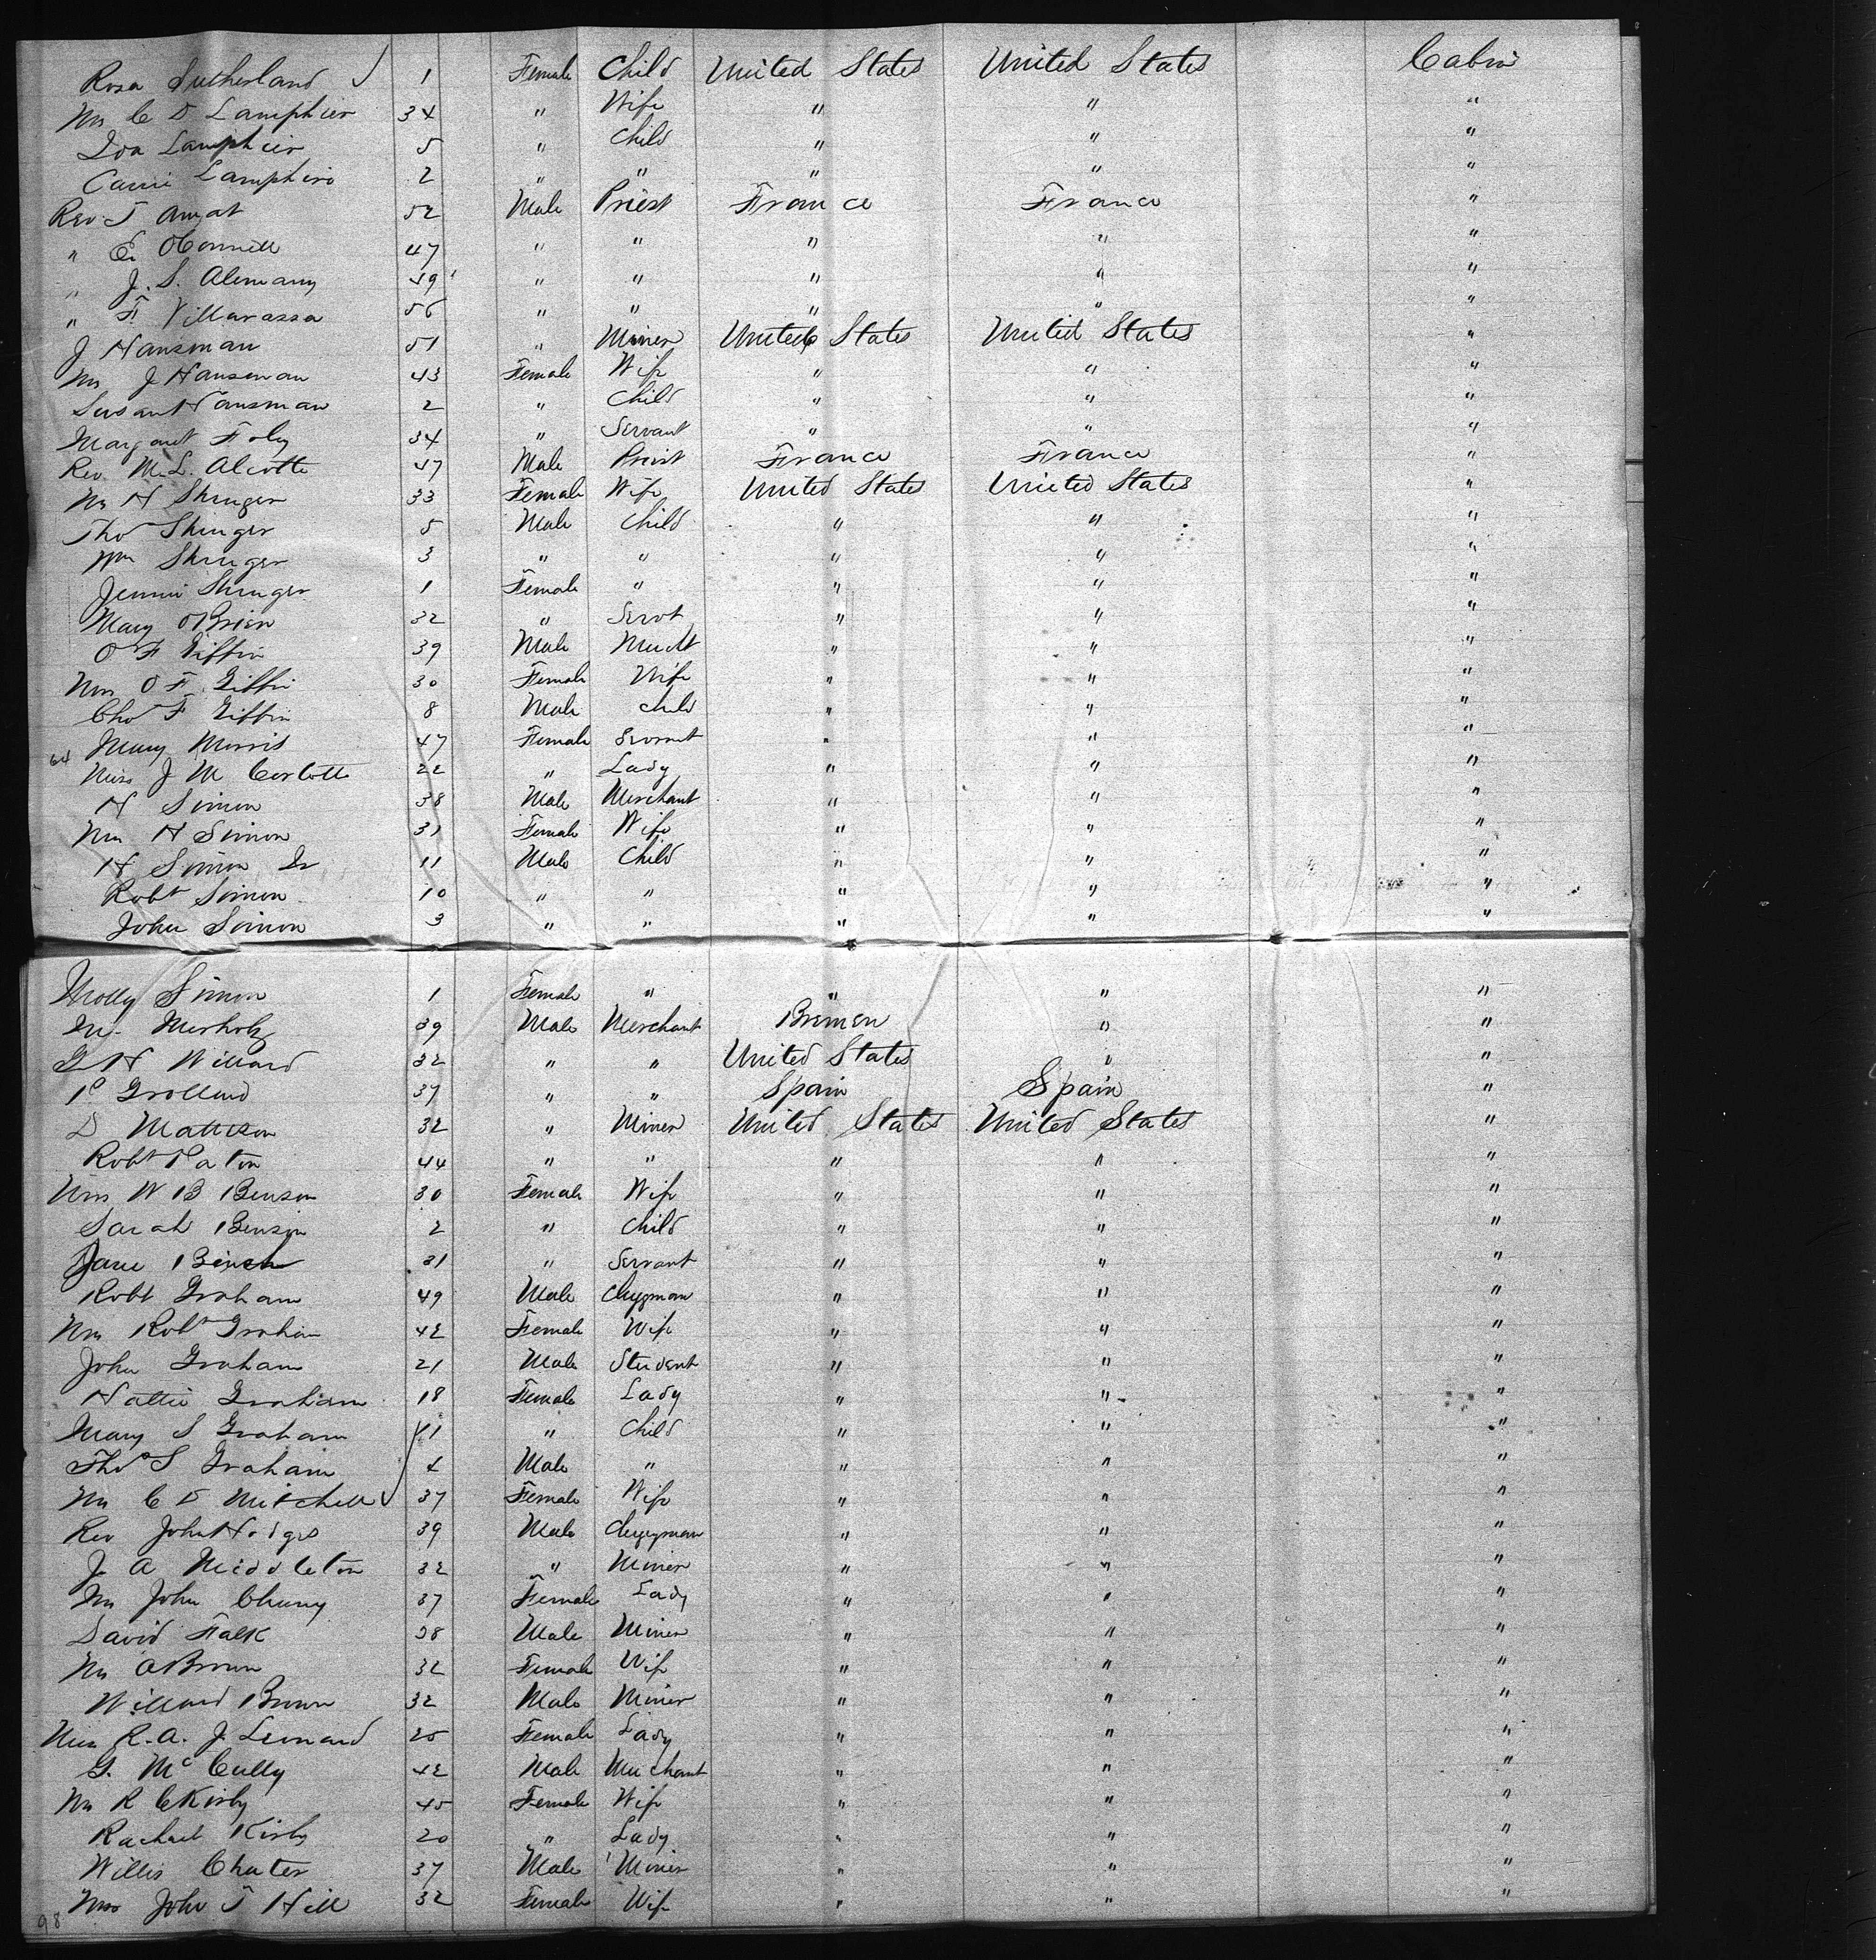 Rosa Sutherland 1 Female Child United States United States Cabin
Mrs C D Lamphier 34 " Wife " " "
Ida Lamphier 5 " Child " " "
Carrie Lamphier 2 " " " " "
Rev T Amat 52 Male Priest France France "
" E. OConnell 47 " " " " "
" J. S. Alemany 49 " " " " "
" F. Villarassa 56 " " " " "
J Hansman 51 " Miner United States United States "
Mrs J Hansman 43 Female Wife " " "
Susan Hansman 2 " Child " " "
Margaret Foley 34 " Servant " " "
Rev M. L. Alcotte 47 Male Priest France France "
Mrs H Shruger 33 Female Wife United States United States "
Thos Shruger 5 Male Child " " "
Wm Shruger 3 " " " " "
Jennie Shruger 1 Female " " " "
Mary OBrien 32 " Servt " " "
O F Giffin 39 Male Mercht " " "
Mrs O F. Giffin 30 Female Wife " " "
Chas F Giffin 8 Male Child " " "
Mary Morris 47 Female Servant " " "
64 Miss J M Corlotte 22 " Lady " " "
H Simon 38 Male Merchant " " "
Mrs H Simon 31 Female Wife " " "
H Simon Jr 11 Male Child " " "
Robt Simon 10 " " " " "
John Simon 3 " " " " "
Molly Simon 1 Female " " " "
M. Merholz 39 Male Merchant Bremen " "
G H Willard 32 " " United States " "
P Grolland 37 " " Spain Spain "
D Mattison 32 " Miner United States United States "
Robt Paton 44 " " " " "
Mrs W B Benson 30 Female Wife " " "
Sarah Benson 2 " Child " " "
Jane Birch 31 " Servant " " "
Robt Graham 49 Male Clergman " " "
Mrs Robt Graham 42 Female Wife " " "
John Graham 21 Male Student " " "
Hattie Graham 18 Female Lady " " "
Mary S Graham 11 " Child " " "
Thos S Graham 4 Male " " " "
Mrs C D Mitchell 37 Female Wife " " "
Rev John Hodges 39 Male Clergyman " " "
J. A Middleton 32 " Miner " " "
Mrs John Cheney 37 Female Lady " " "
David Falk 28 Male Miner " " "
Mrs A Brown 32 Female Wife " " "
Willard Brown 32 Male Miner " " "
Miss R. A. J Leonard 25 Female Lady " " "
G. McCully 42 Male Merchant " " "
Mrs R C Kirby 45 Female Wife " " "
Rachael Kirby 20 " Lady " " "
Willis Chater 37 Male Miner " " "
Mrs John T Hill 32 Female Wife " " "
98